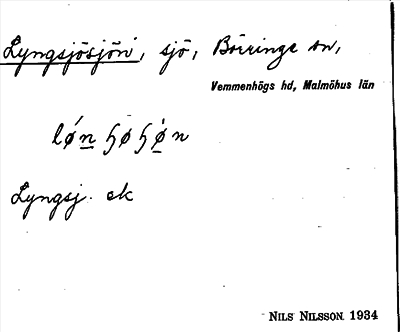 Lyngsjösjön, sjö, Börringe sn,
Vemmenhögs hd, Malmöhus län
Lyngsj. ek
NILS NILSSON 1934